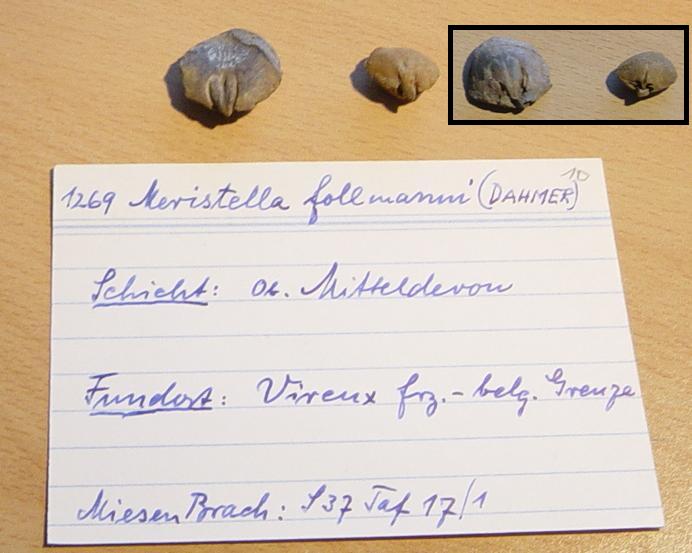 1269 Meristella follmanni (DAHMER) 10
Schicht: Ob. Mitteldevon
Fundort: Vireux frz.-belg. Grenze
Miesen Brach: S37 Taf 17/1